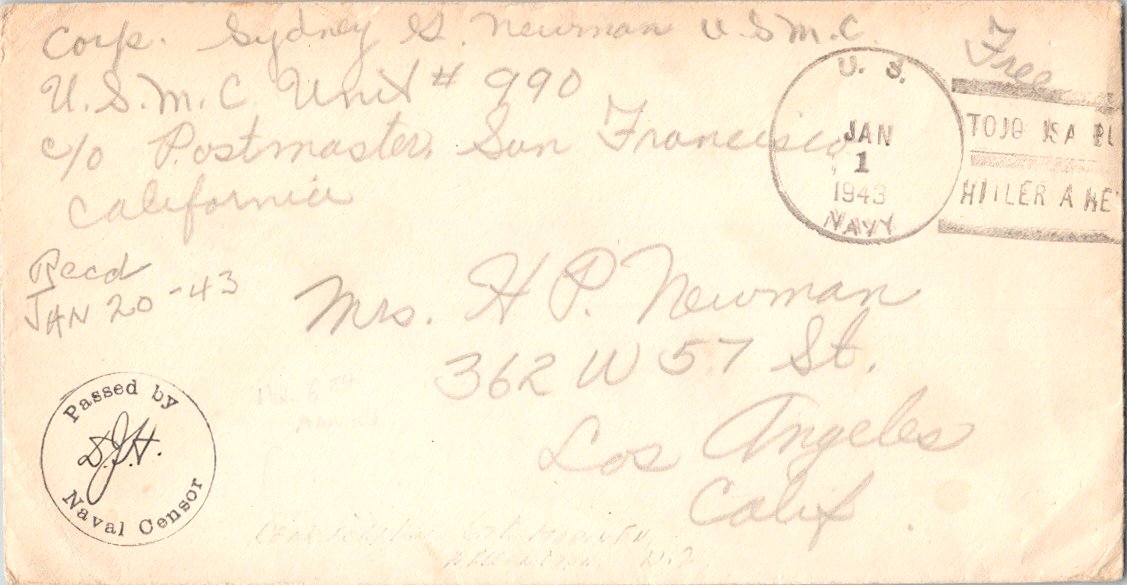 Corp. Sydney G. Newman U.S.M.C.
U.S.M.C. Unit # 990
c/o Postmaster San Francisco
California
Free
U. S.
JAN
1
1943
NAVY
TOJO IS A BU
HITLER A HE
Recd
JAN 20-43
Mrs. H P. Newman
362 W 57 St.
Los Angeles
Calif.
Passed by
D.J.H.
Naval Censor